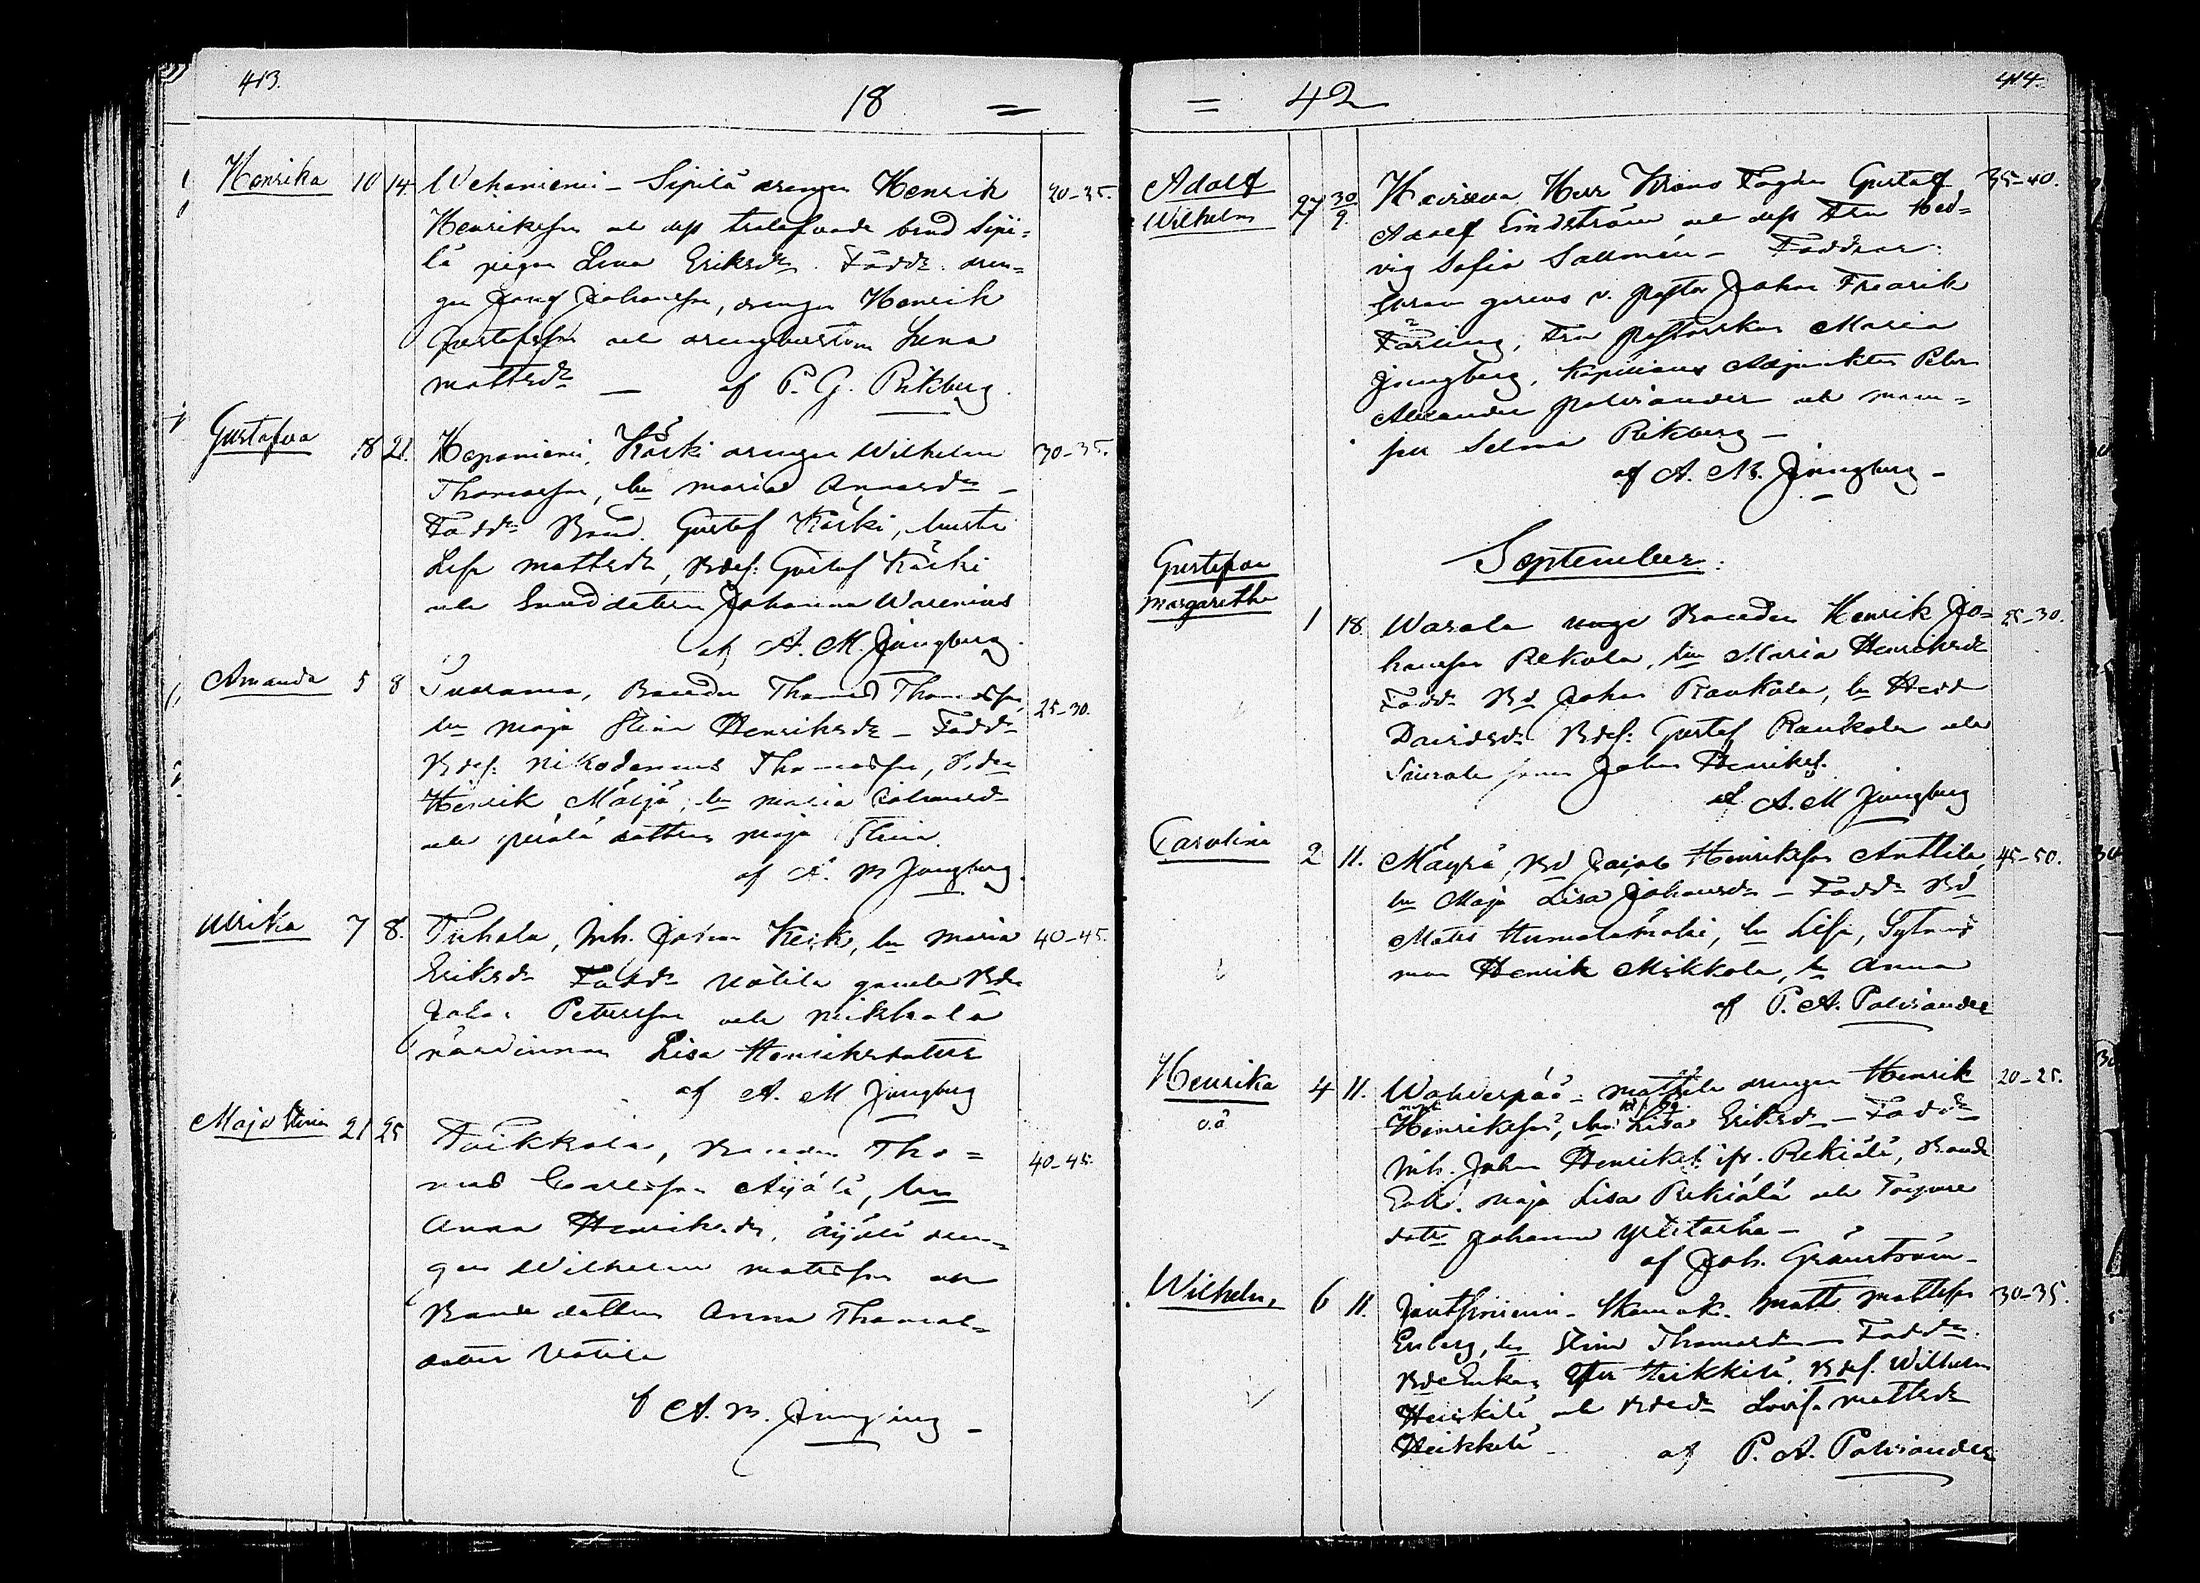 413.
18 =
Henrika 10 14 Wehaniemi - Sipilä drengen Henrik 20-25.
Henriksson och dess trolofvade brud Sipi=
lä pigan Lena Eriksdr. Faddr. dren=
gen Josef Johansson, drengen Henrik
Gustafsson och drenghustrun Lena
Mattsdr — af P. G. Rikberg.
Gustafva 18 21. Haponiemi, Kärki drengen Wilhelm 30-35.
Thomasson, hu Maria Annasdr —
Faddr Bond. Gustaf Kärki, hustr
Lisa Mattsdr, Bdes: Gustaf Kärki
och Johanna Warenius
af A. M. Jungberg.
Amanda 5 8 Suorama, Bonden Thomas Thomasson, 25-30.
hu Maja Stina Henriksdr — Faddr
Bdes: Nikodemus Thomasson, Bden
Henrik, hu Maria Johansdr
och dottren Maja Stina.
af A. M Jungberg.
Ulrika 7 8. Tiihala, Inh. Johan Keik, hu Maria 40-45.
Eriksdr Faddr Uotila gamle Bde
Johan Petersson och Mikkola
värdinnan Lisa Henriksdotter
af A. M Jungberg
Maja Stina 21 25 Toikkola, Bonden Tho= 40-45.
mas Carlsson Äijälä, hu
Anna Henriksdr, Äijälä dren=
gen Wilhelm Mattsson och
Bonde dottren Anna Thomas=
dotter Uotila
af A. M. Jungberg —
= 42
414.
Adolf
Wilhelm 27 30/9. Herr Krono Fogden Gustaf 35-40.
Adolf Lindström och dess Fru Hed=
vig Sofia Sallmén — Faddrar:
v. Pastor Johan Fredrik
Färling, Fru Pastorskan Maria
Jungberg, Kapellans Adjunkten Peter
Alexander Palviander och mam=
sell Selma Rikberg —
af A. M. Jungberg —
September:
Gustafva
Margaretha 1 18. Warala unge Bonden Henrik Jo= 25-30.
hansson Rekola, hu Maria Henriksdr
Faddr Bd Johan Raukola, hu Hedd
Davidsdr Bdes: Gustaf Raukola och
Johan Henriks.
af A. M Jungberg
Carolina 2 11. Mäyrä, Bd Jacob Henriksson Anttila, 45-50.
hu Maja Lisa Johansdr — Faddr Bd
Matts Humalamäki, hu Lisa, Sytnings
man Henrik Mikkola, hu Anna
af P. A. Palviander
Henrika
o.ä 4 11. Wahderpää - Mattila drengen Henrik 20-25.
Henriksson, hu Lisa Eriksdr — Faddr
Inh. Johan Henriks. ifr. Rekiälä, Bonde
Enk. Maja Lisa Rekiälä och Torpare
dottr Johanna Ylitarha —
af Joh. Granström —
Wilhelm, 6 11. Jouttiniemi - Skomak. Matts Mattsson 30-35.
Enberg, hu Stina Thomasdr — Faddr.
Bde Enkan Heikkilä, Bdes. Wilhelm
Heikkilä och Bdedr Lovisa Mattsdr
Heikkilä — af P. A. Palviander